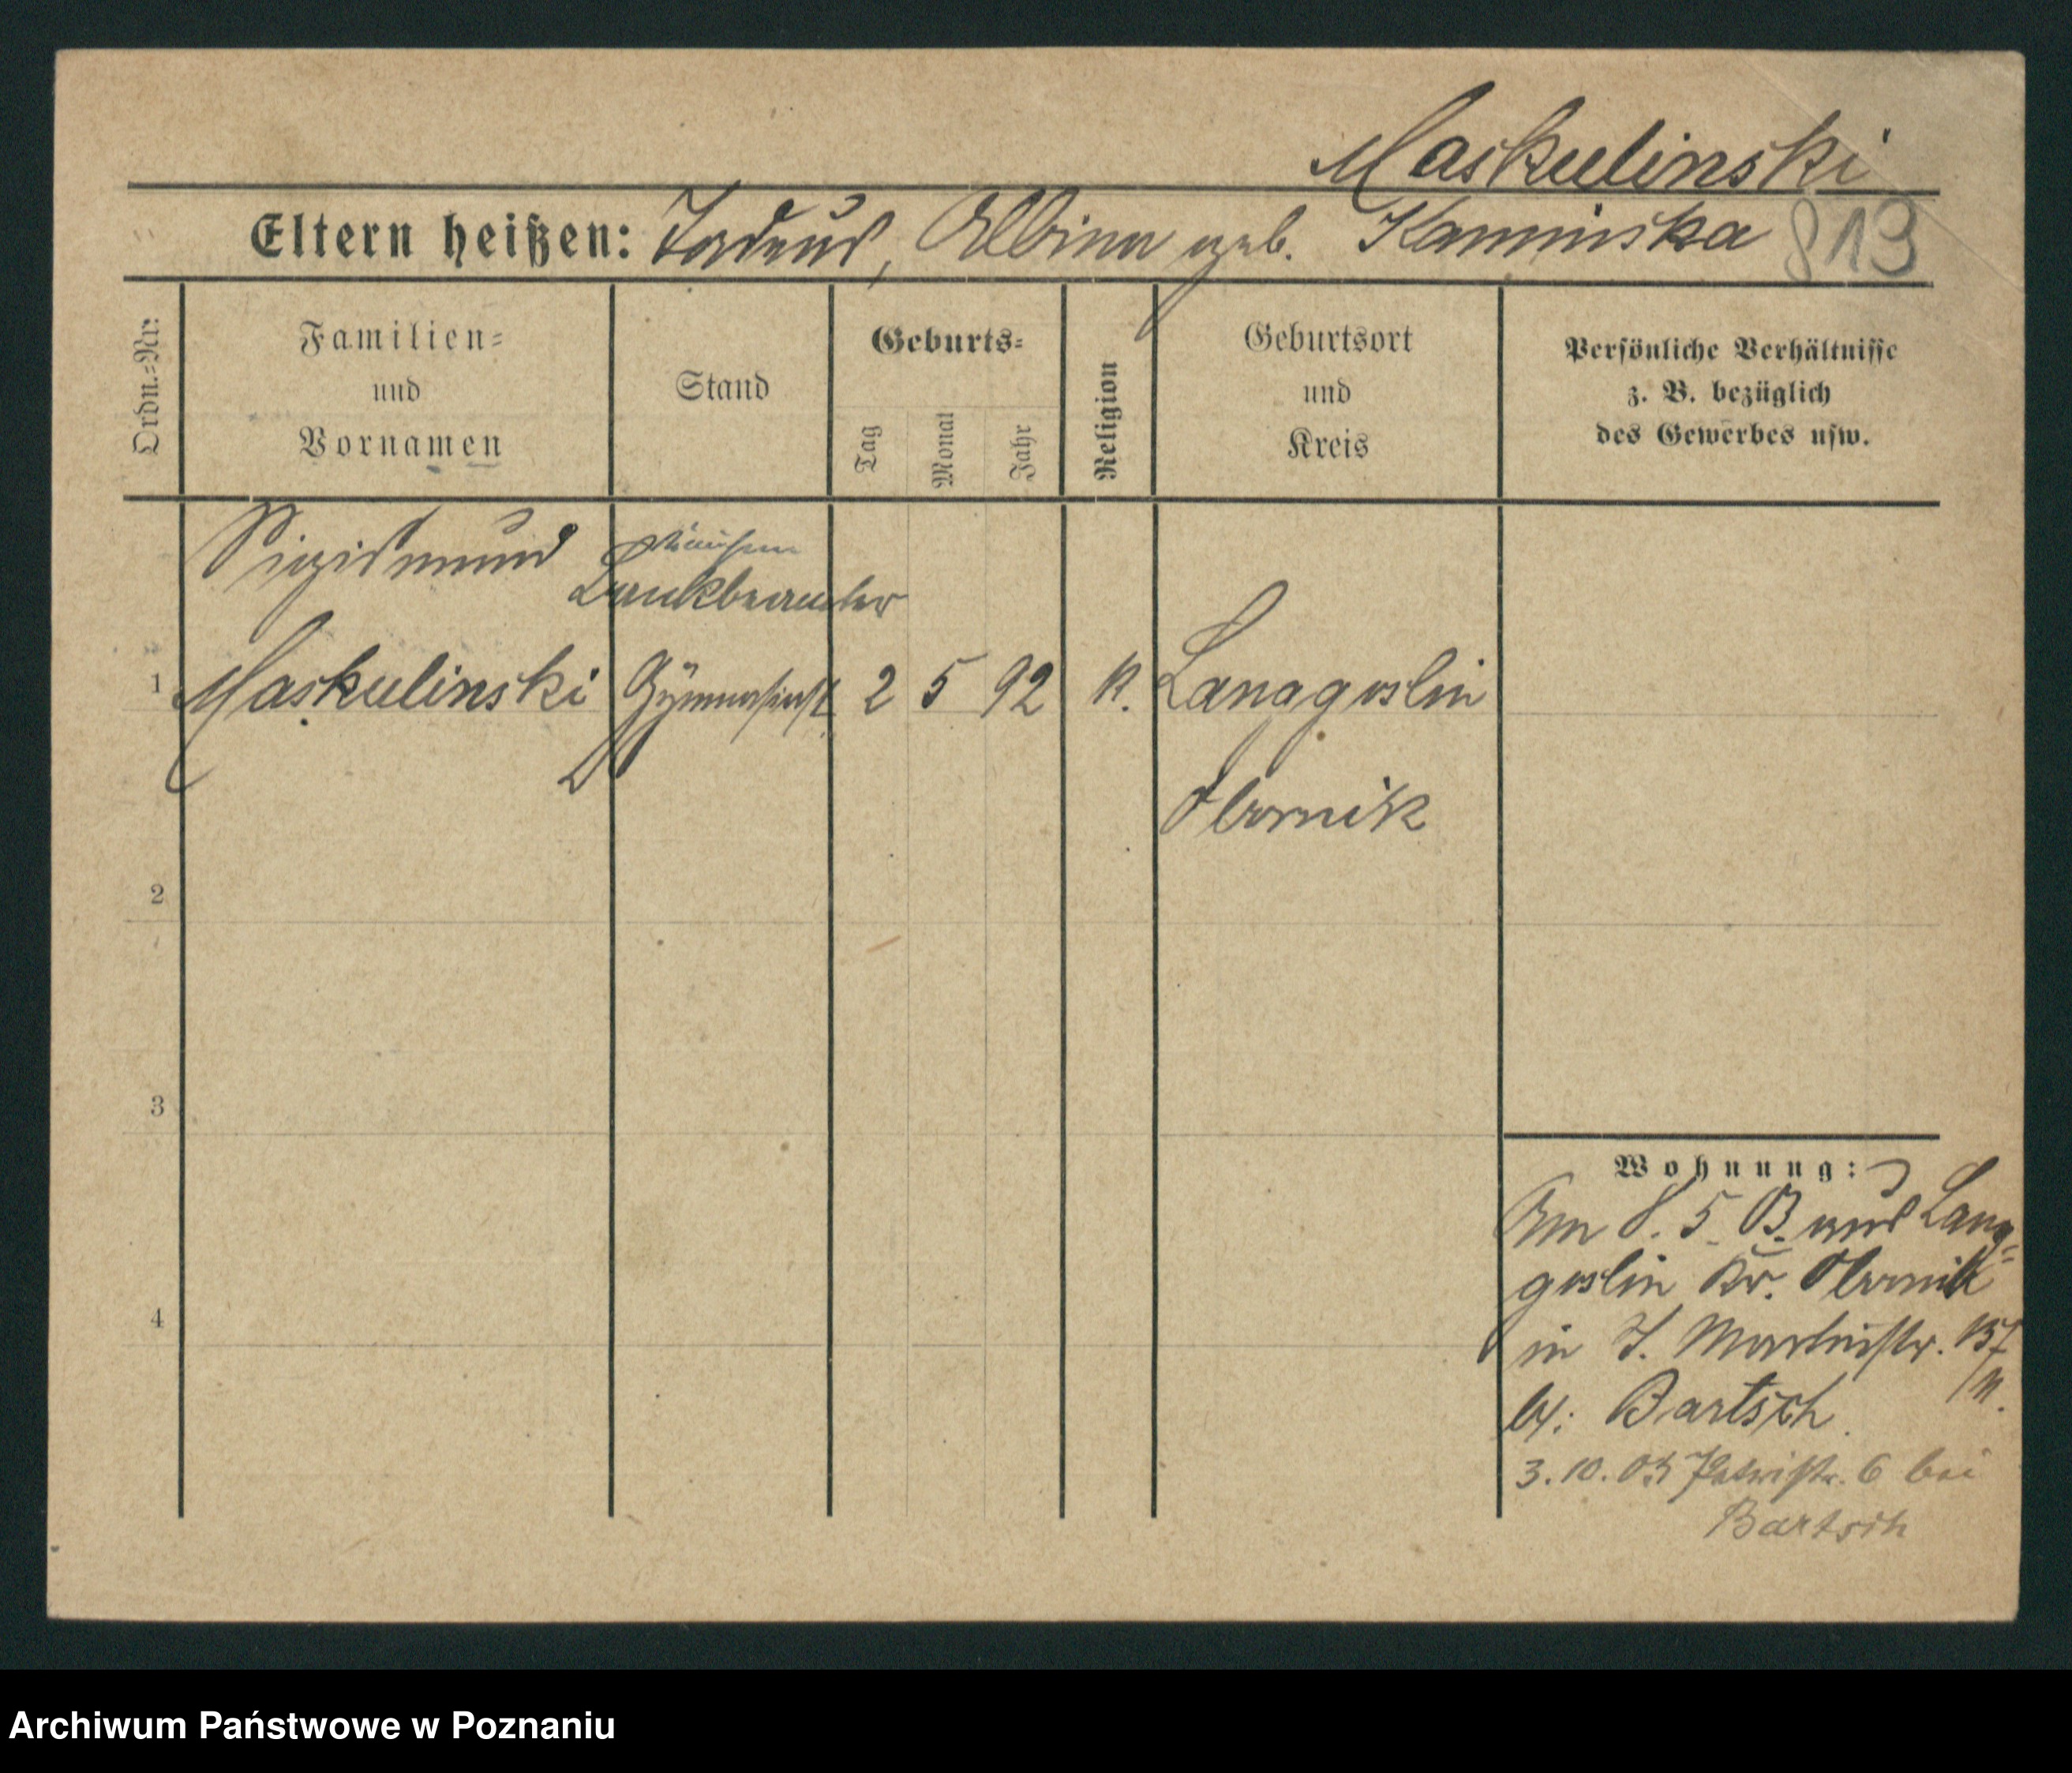 Maskulinski
Eltern heißen: Tadeus, Albina geb. Kaminska 813
Ordn.-Nr.
Familien-
und
Vornamen
Stand
Geburts-
Tag
Monat
Jahr
Religion
Geburtsort
und
Kreis
Persönliche Verhältnisse
z. B. bezüglich
des Gewerbes usw.
Sigismund
Bankbeamter
1 Maskulinski Gymnasiast 2 5 92 K. Langgoslin
Obornik
2
3
4
Wohnung:
Am 8. 5. 03 aus Lang-
goslin Kr. Obornik
in S. Martinstr.
bei: Bartsch.
3.10.03 Petristr. 6 bei
Bartsch
Archiwum Państwowe w Poznaniu